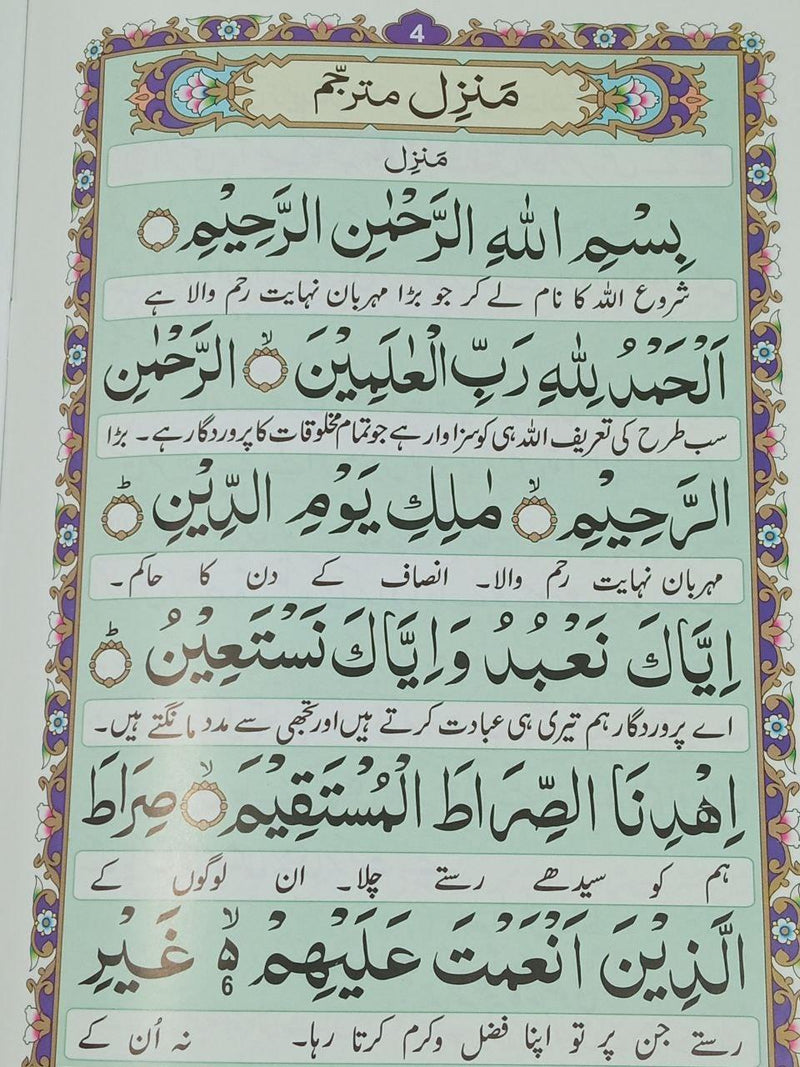 4
مَنزِل مترجّم
مَنزِل
بِسْمِ اللّٰهِ الرَّحْمٰنِ الرَّحِيْمِ
شروع اللہ کا نام لے کر جو بڑا مہربان نہایت رحم والا ہے
اَلْحَمْدُ لِلّٰهِ رَبِّ الْعٰلَمِيْنَ ۙ الرَّحْمٰنِ
سب طرح کی تعریف اللہ ہی کو سزاوار ہے جو تمام مخلوقات کا پروردگار ہے۔ بڑا
الرَّحِيْمِ ۙ مٰلِكِ يَوْمِ الدِّيْنِ ؕ
مہربان نہایت رحم والا۔ انصاف کے دن کا حاکم۔
اِيَّاكَ نَعْبُدُ وَاِيَّاكَ نَسْتَعِيْنُ ؕ
اے پروردگار ہم تیری ہی عبادت کرتے ہیں اور تجھی سے مدد مانگتے ہیں۔
اِهْدِنَا الصِّرَاطَ الْمُسْتَقِيْمَ ۙ صِرَاطَ
ہم کو سیدھے رستے چلا۔ ان لوگوں کے
الَّذِيْنَ اَنْعَمْتَ عَلَيْهِمْ ۙ۵ 6 غَيْرِ
رستے جن پر تو اپنا فضل وکرم کرتا رہا۔ نہ اُن کے